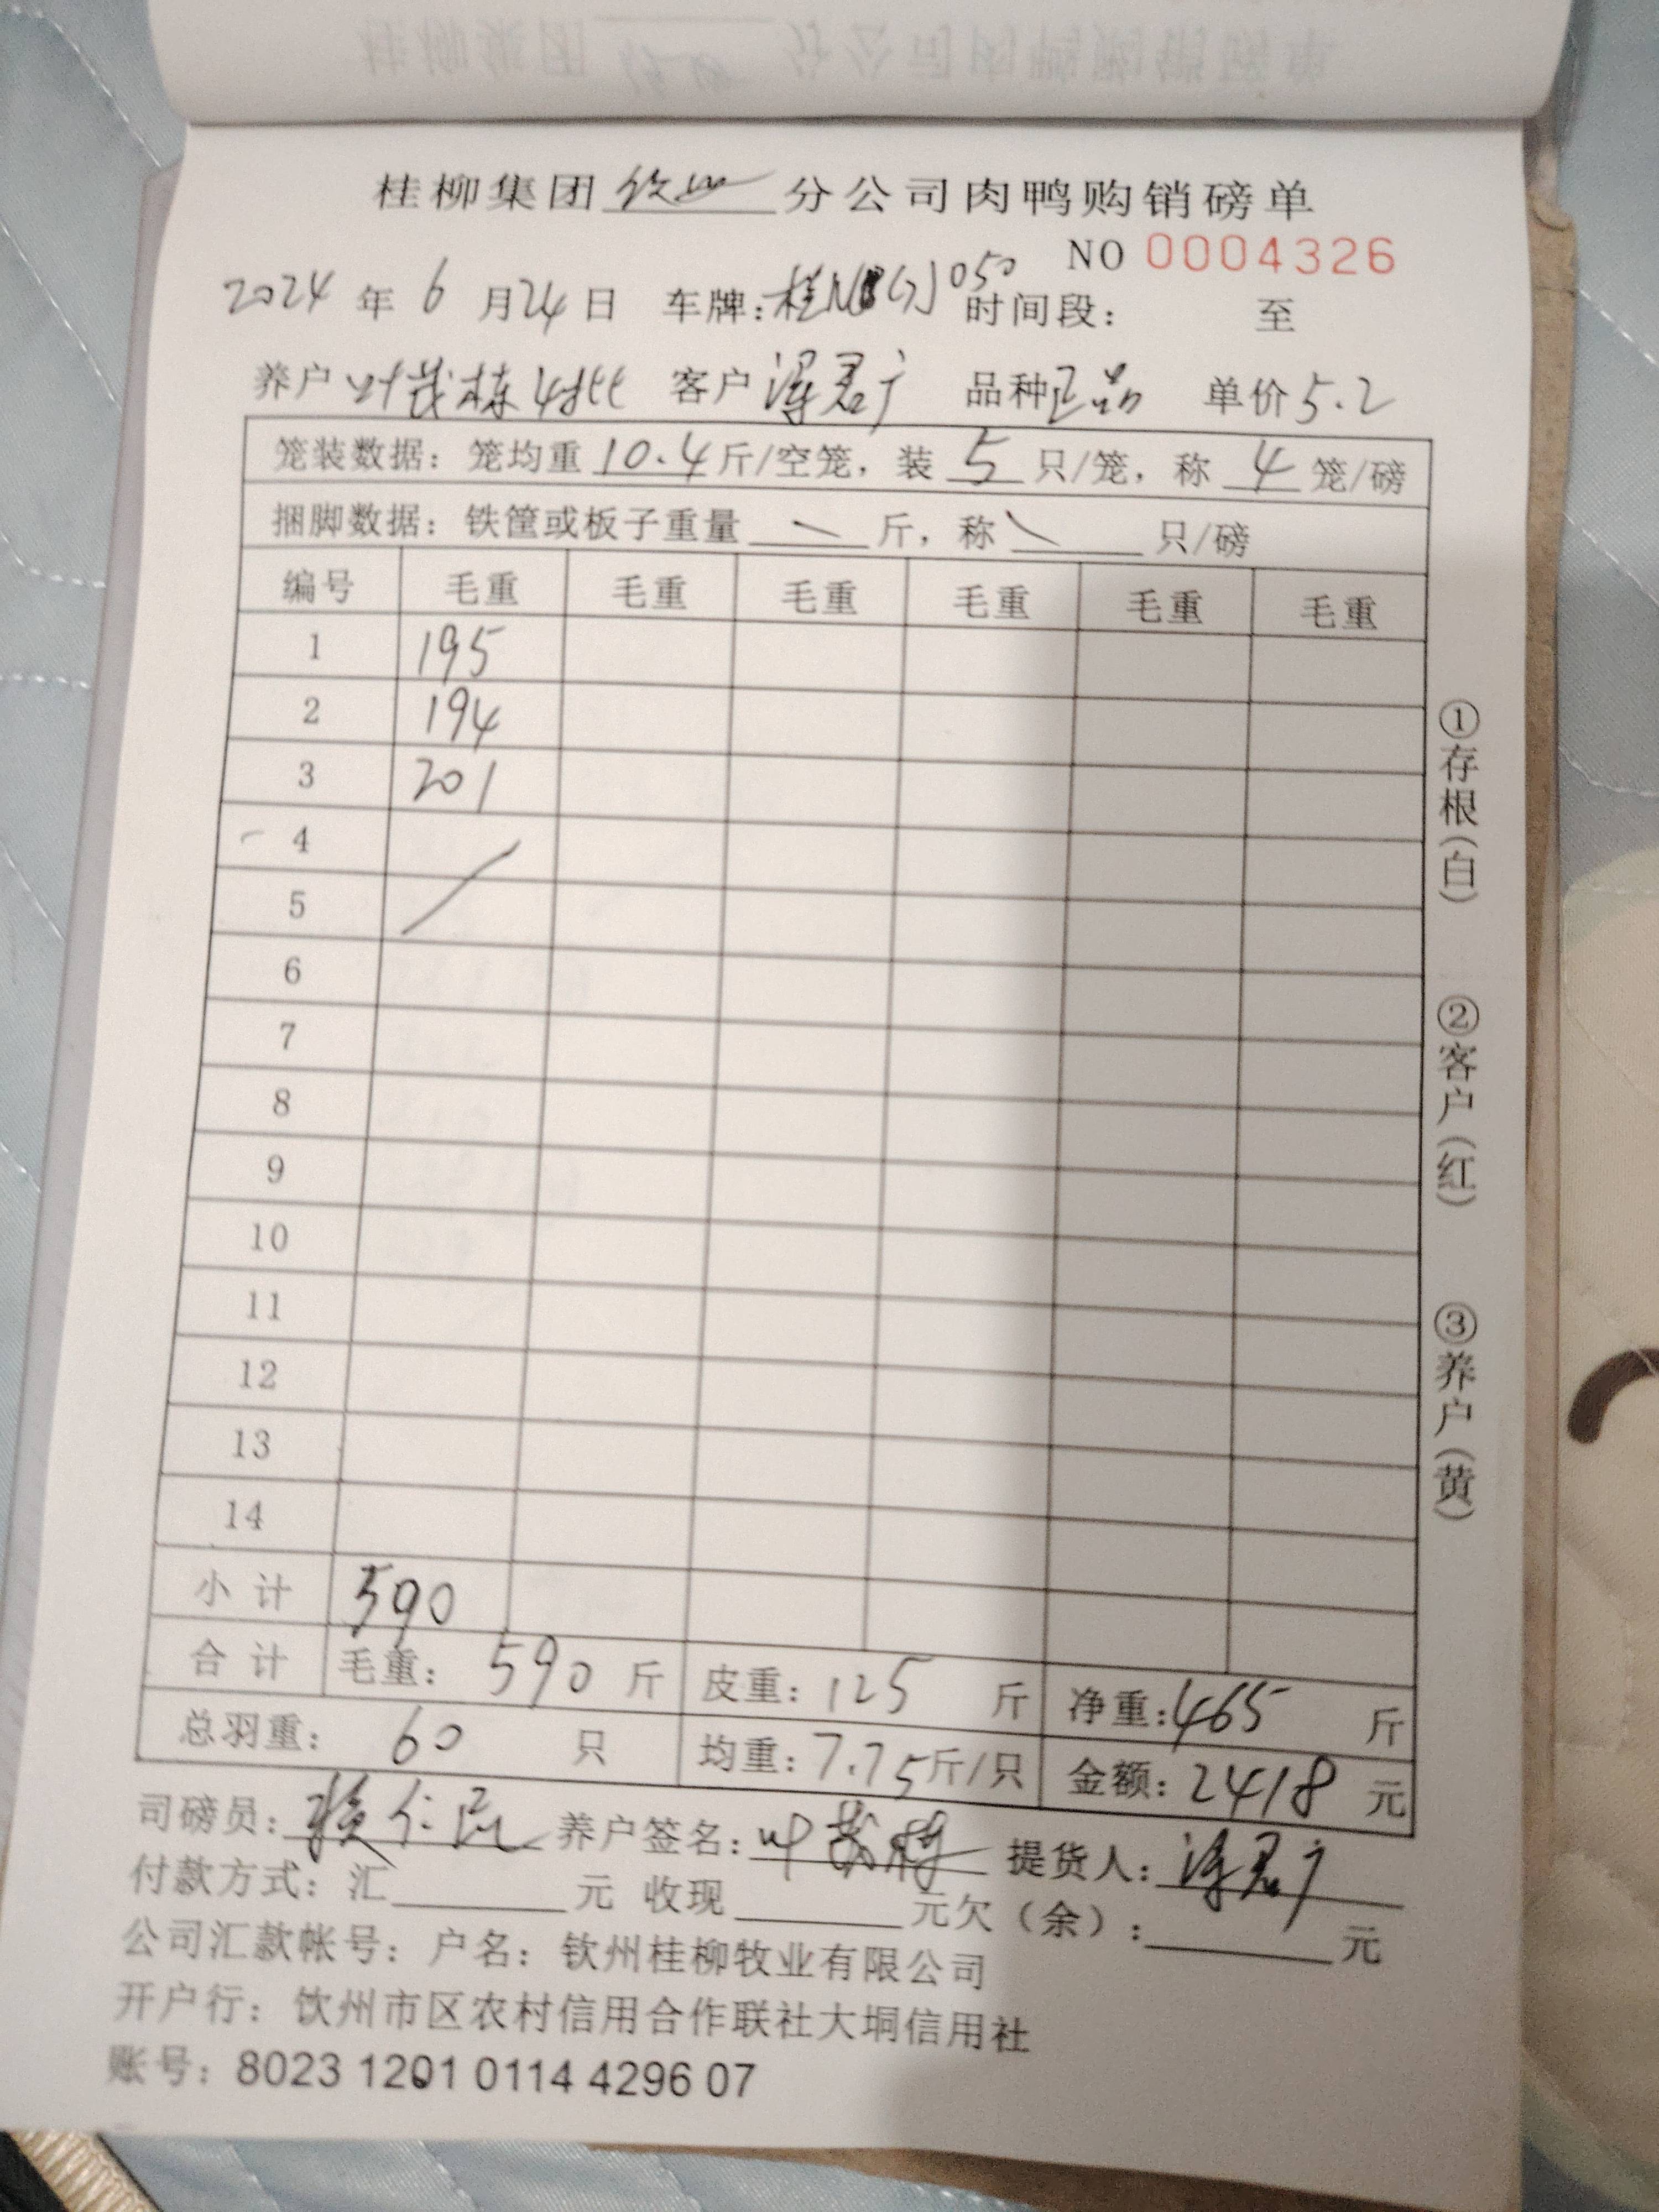 桂柳集团钦州分公司肉鸭购销磅单
NO 0004326
2024年6月24日 车牌:桂N 050 时间段: 至
养户叶茂栋4批 客户 君广 品种正品 单价5.2
笼装数据:笼均重10.4斤/空笼,装5只/笼,称4笼/磅
捆脚数据:铁筐或板子重量 斤,称 只/磅
编号 毛重 毛重 毛重 毛重 毛重 毛重
1 195
2 194
3 201
4
5
6
7
8
9
10
11
12
13
14
小计 590
合计 毛重:590斤 皮重:125斤 净重:465斤
总羽重:60只 均重:7.75斤/只 金额:2418元
司磅员: 养户签名:叶茂栋 提货人: 君广
付款方式:汇 元 收现 元欠(余): 元
公司汇款帐号:户名:钦州桂柳牧业有限公司
开户行:钦州市区农村信用合作联社大垌信用社
账号:8023 1201 0114 4296 07
①存根(白) ②客户(红) ③养户(黄)